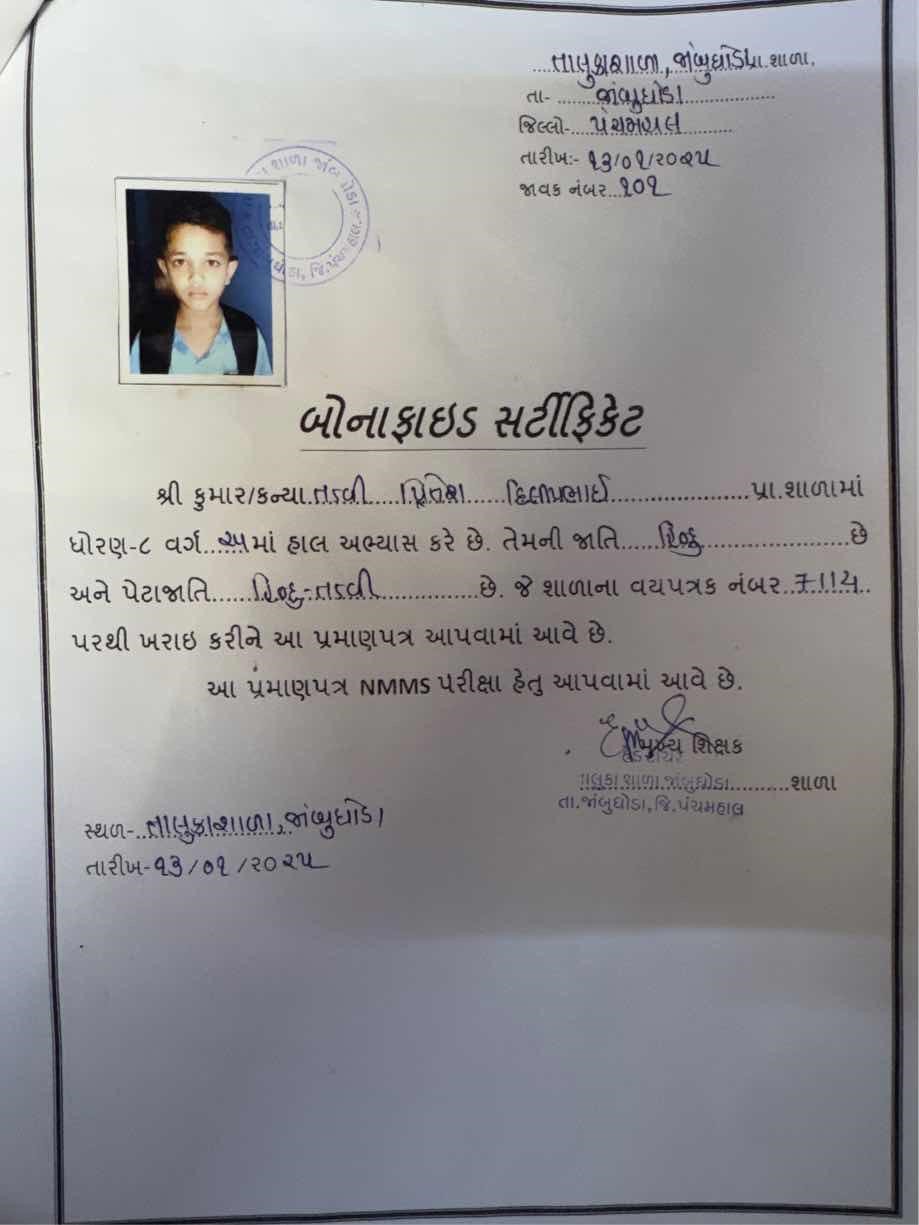 તાલુકાશાળા, જાંબુઘોડા પ્રા.શાળા.
તા- જાંબુઘોડા
જિલ્લો- પંચમહાલ
તારીખ:- ૧૩/૦૧/૨૦૨૫
જાવક નંબર ૧૦૧
શાળા જાંબુઘોડા
જાંબુઘોડા, જિ.પંચમહાલ.
બોનાફાઇડ સર્ટીફિકેટ
શ્રી કુમાર/કન્યા તડવી પ્રિતેશ દિલીપભાઈ પ્રા.શાળામાં
ધોરણ-૮ વર્ગ અમાં હાલ અભ્યાસ કરે છે. તેમની જાતિ હિન્દુ છે
અને પેટાજાતિ હિન્દુ-તડવી છે. જે શાળાના વયપત્રક નંબર 7114
પરથી ખરાઇ કરીને આ પ્રમાણપત્ર આપવામાં આવે છે.
આ પ્રમાણપત્ર NMMS પરીક્ષા હેતુ આપવામાં આવે છે.
મુખ્ય શિક્ષક
હેડ ટીચર
તાલુકા શાળા જાંબુઘોડા શાળા
તા.જાંબુઘોડા, જિ.પંચમહાલ
સ્થળ- તાલુકાશાળા, જાંબુઘોડા
તારીખ- ૧૩/૦૧/૨૦૨૫